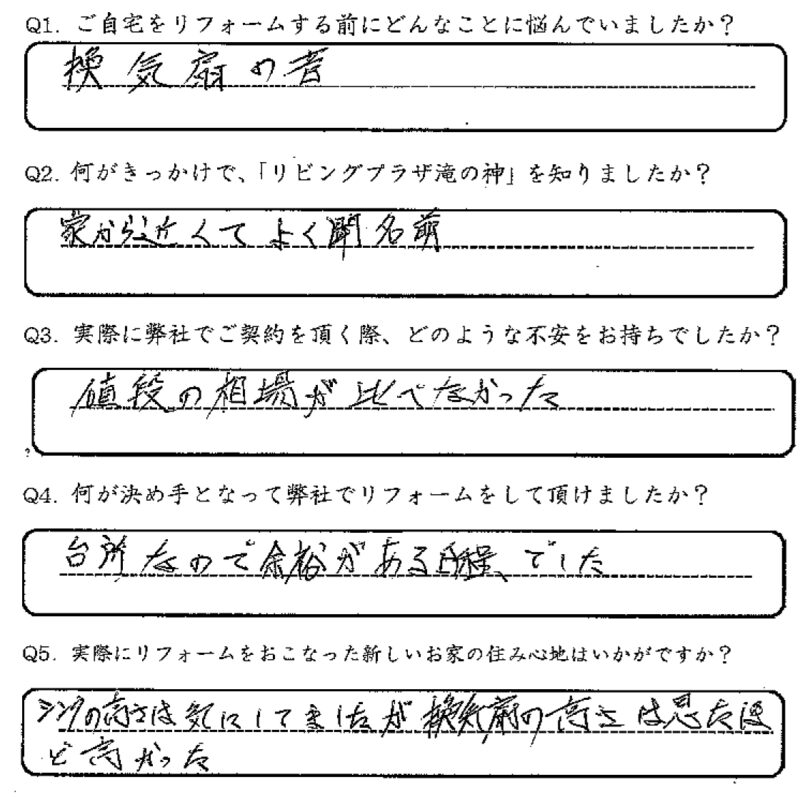 Q1. ご自宅をリフォームする前にどんなことに悩んでいましたか？
換気扇の音
Q2. 何がきっかけで、「リビングプラザ滝の神」を知りましたか？
家から近くてよく聞名前
Q3. 実際に弊社でご契約を頂く際、どのような不安をお持ちでしたか？
値段の相場が比べなかった
Q4. 何が決め手となって弊社でリフォームをして頂けましたか？
台所なので余裕がある日程、でした
Q5. 実際にリフォームをおこなった新しいお家の住み心地はいかがですか？
シンクの高さは気にしてましたが換気扇の高さは思たほ
ど高かった